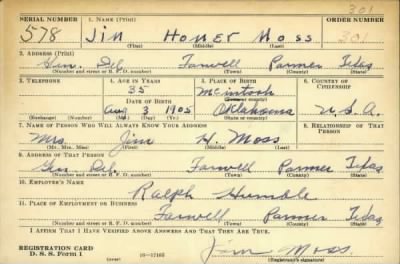 301
SERIAL NUMBER 1. NAME (Print) ORDER NUMBER
578 Jim Homer Moss 301
(First) (Middle) (Last)
2. ADDRESS (Print)
Gen. Del. Farwell Parmer Texas
(Number and street or R. F. D. number) (Town) (County) (State)
3. TELEPHONE 4. AGE IN YEARS 5. PLACE OF BIRTH 6. COUNTRY OF CITIZENSHIP
35 McIntosh
DATE OF BIRTH (Town or county)
Aug 3 1905 Oklahoma U.S.A.
(Exchange) (Number) (Mo.) (Day) (Yr.) (State or country)
7. NAME OF PERSON WHO WILL ALWAYS KNOW YOUR ADDRESS 8. RELATIONSHIP OF THAT PERSON
Mrs. Jim H. Moss
(Mr., Mrs., Miss) (First) (Middle) (Last)
9. ADDRESS OF THAT PERSON
Gen Del. Farwell Parmer Texas
(Number and street or R. F. D. number) (Town) (County) (State)
10. EMPLOYER'S NAME
Ralph Humble
11. PLACE OF EMPLOYMENT OR BUSINESS
Farwell Parmer Texas
(Number and street or R. F. D. number) (Town) (County) (State)
I AFFIRM THAT I HAVE VERIFIED ABOVE ANSWERS AND THAT THEY ARE TRUE.
REGISTRATION CARD
D. S. S. Form 1 (over) 16—17105 Jim Moss